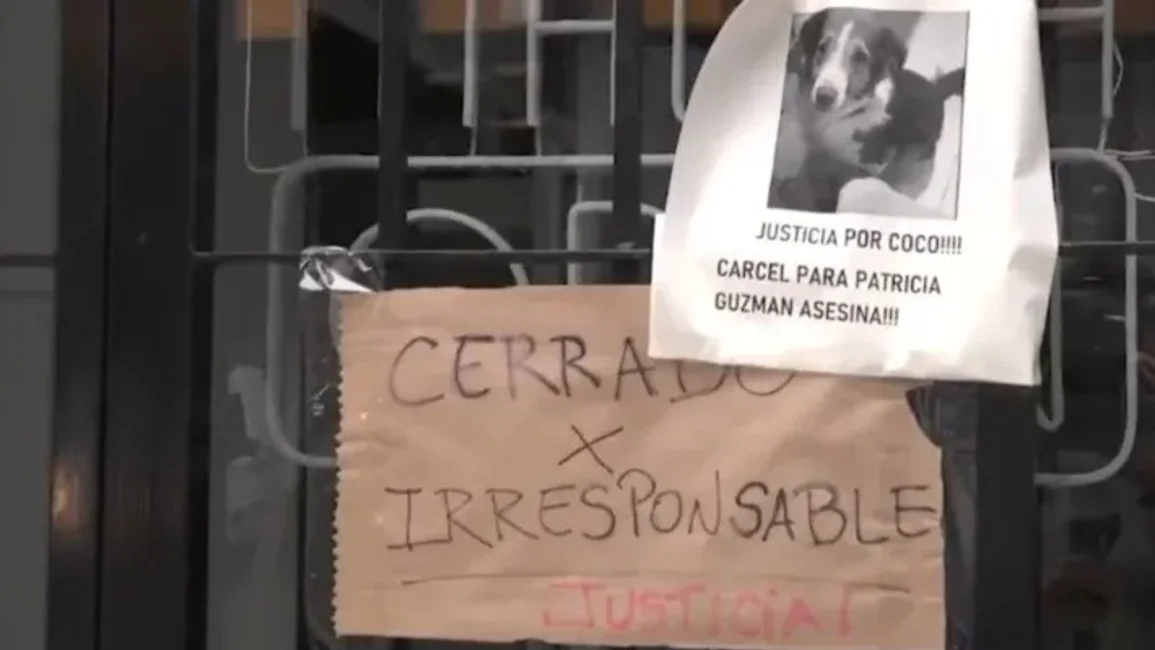 JUSTICIA POR COCO!!!!
CARCEL PARA PATRICIA
GUZMAN ASESINA!!!
CERRADO
X
IRRESPONSABLE
JUSTICIA!